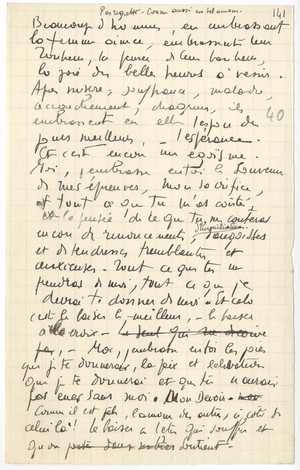 141
40
Beaucoup d'hommes, en embrassant
la femme aimée, embrassent leur
bonheur, la pensée d'un bonheur,
la joie des belles heures à venir.
Après misère, souffrance, maladie,
accouchement, chagrins, ils
embrassent en elle l'espoir de
jours meilleurs, – l'espérance.
Et c'est encore un égoïsme.
Moi, j'embrasse en toi le souvenir
de mes épreuves, mon sacrifice,
et tout ce que tu m'as coûté,
et la pensée de ce que tu me coûteras
encore de renoncements, d'humiliations,
et de tendresses tremblantes et
anxieuses. Tout ce que tu
prendras de moi, tout ce que je
devrai te donner de moi. Et cela
c'est le baiser le meilleur, – le baiser
à la croix –
pas, – Moi, j'embrasse en toi les joies
que je te donnerai, la paix et
que je te donnerai et que tu n'aurais
pas eues sans moi. Mon Devoir.
Comme il est pâle, l'amour des autres, à côté de
celui-là! Le baiser à l'être qui souffre et
qu'on soutient.